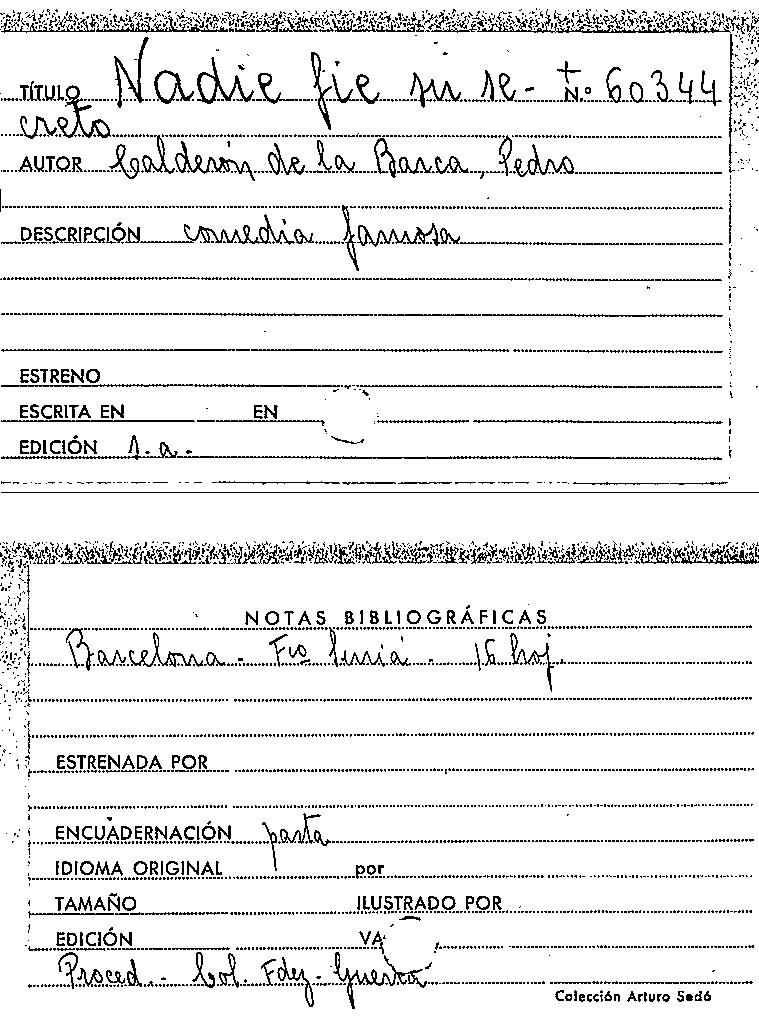 TÍTULO Nadie fie su se- + N.º 60344
creto
AUTOR Calderón de la Barca, Pedro
DESCRIPCIÓN comedia famosa
ESTRENO
ESCRITA EN EN
EDICIÓN s.a.
NOTAS BIBLIOGRÁFICAS
Barcelona - Fco Suriá - 16 hoj.
ESTRENADA POR
ENCUADERNACIÓN pasta
IDIOMA ORIGINAL por
TAMAÑO ILUSTRADO POR
EDICIÓN VA
Proced. - Col. Fdez - Guerra
Colección Arturo Sedó